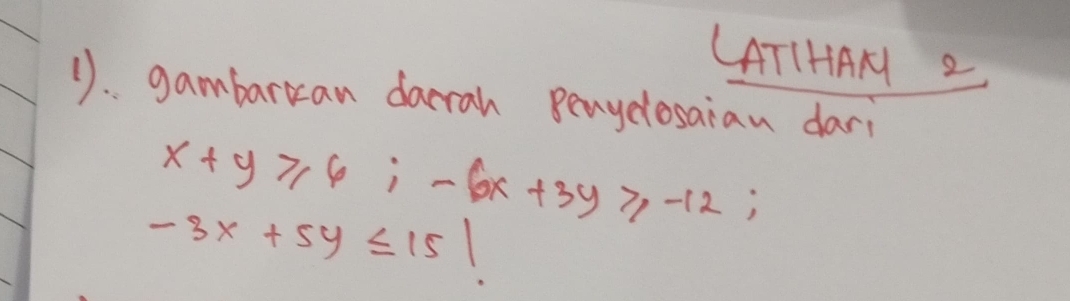 LATIHAN 2
1).. gambarkan daerah penyelosaian dari
x + y ≥ 6 ; - 6x + 3y ≥ -12 ;
- 3x + 5y ≤ 15 !